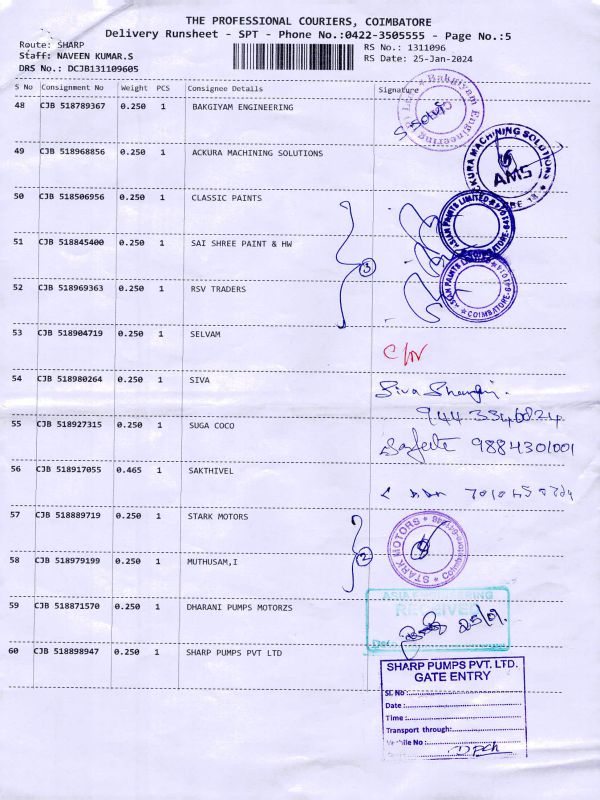 THE PROFESSIONAL COURIERS, COIMBATORE
Delivery Runsheet - SPT - Phone No.:0422-3505555 - Page No.:5
Route: SHARP
Staff: NAVEEN KUMAR.S
DRS No.: DCJB131109605
RS No.: 1311096
RS Date: 25-Jan-2024
S No Consignment No Weight PCS Consignee Details Signature
48 CJB 518789367 0.250 1 BAKGIYAM ENGINEERING
49 CJB 518968856 0.250 1 ACKURA MACHINING SOLUTIONS
ACKURA MACHINING SOLUTIONS
AMS
50 CJB 518506956 0.250 1 CLASSIC PAINTS
ASIAN PAINTS LIMITED
51 CJB 518845400 0.250 1 SAI SHREE PAINT & HW
3
52 CJB 518969363 0.250 1 RSV TRADERS
ASIAN PAINTS LIMITED
COIMBATORE
53 CJB 518904719 0.250 1 SELVAM
54 CJB 518980264 0.250 1 SIVA
Siva
55 CJB 518927315 0.250 1 SUGA COCO
9884301001
56 CJB 518917055 0.465 1 SAKTHIVEL
57 CJB 518889719 0.250 1 STARK MOTORS
STARK MOTORS
2
58 CJB 518979199 0.250 1 MUTHUSAM,I
59 CJB 518871570 0.250 1 DHARANI PUMPS MOTORZS
RECEIVED
25/01
60 CJB 518898947 0.250 1 SHARP PUMPS PVT LTD
SHARP PUMPS PVT. LTD.
GATE ENTRY
Sl. No :
Date :
Time :
Transport through:
Vehile No :